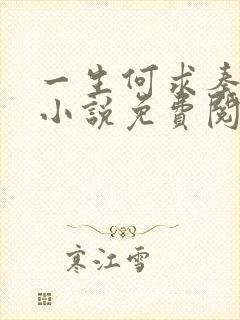 一生何求秦
小說免費閱
寒江雪